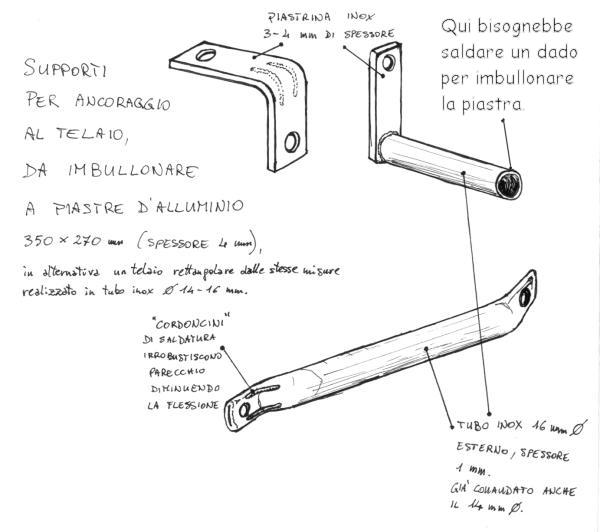 PIASTRINA INOX
3-4 mm DI SPESSORE
Qui bisognebbe
saldare un dado
per imbullonare
la piastra.
SUPPORTI
PER ANCORAGGIO
AL TELAIO,
DA IMBULLONARE
A PIASTRE D'ALLUMINIO
350 x 270 mm (SPESSORE 4 mm),
in alternativa un telaio rettangolare dalle stesse misure
realizzato in tubo inox Ø 14-16 mm.
"CORDONCINI"
DI SALDATURA
IRROBUSTISCONO
PARECCHIO
DIMINUENDO
LA FLESSIONE
TUBO INOX 16 mm Ø
ESTERNO, SPESSORE
1 mm.
GIÀ COMANDATO ANCHE
IL 14 mm Ø.